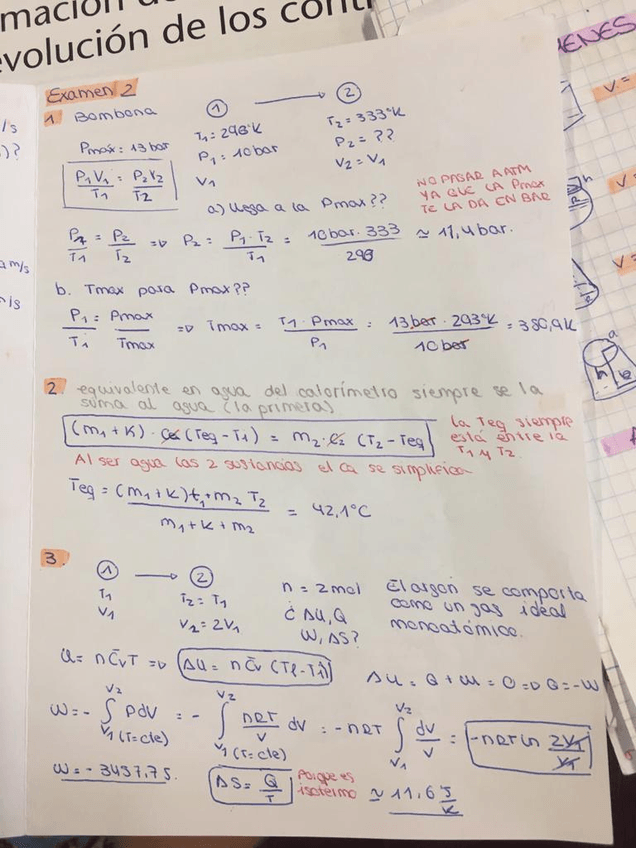 mación de
evolución de los cont
ENES
V=
V=
V=
h
a
/s
)?
m/s
/s
Examen 2
1 Bombona
① → ②
T₁ = 293°K
T₂ = 333°K
Pmáx = 13 bar
P₁ = 10 bar
P₂ = ??
V₁
V₂ = V₁
P₁V₁/T₁ = P₂V₂/T₂
NO PASAR A ATM
YA QUE LA Pmax
TE LA DA EN BAR
a) llega a la Pmax??
P₁/T₁ = P₂/T₂ => P₂ = P₁·T₂/T₁ = 10 bar · 333/293 ≃ 11,4 bar.
b. Tmax para Pmax??
P₁/T₁ = Pmax/Tmax => Tmax = T₁ · Pmax/P₁ = 13 bar · 293°K/10 bar = 380,9 K
2. equivalente en agua del calorímetro siempre se la
suma al agua (la primera)
(m₁+K) · Ce (Teq - T₁) = m₂ · Ce (T₂ - Teq)
la Teq siempre
está entre la
T₁ y T₂.
Al ser agua las 2 sustancias el Ca se simplifica
Teq = (m₁+K)t₁+m₂ T₂/m₁+K+m₂ = 42,1°C
3.
① → ②
T₁
T₂ = T₁
V₁
V₂ = 2V₁
n = 2mol
¿ ΔU, Q
W, ΔS?
El argón se comporta
como un gas ideal
monoatómico.
U = n C̄v T => ΔU = n C̄v (Tf - Ti)
ΔU = Q + W = 0 => Q = -W
W = - ∫ V₂ V₁ (T=cte) PdV = - ∫ V₂ V₁ (T=cte) nRT/V dV = -nRT ∫ V₂ V₁ dV/V = -nRT ln 2V₁/V₁
W = - 3437,7 J.
ΔS = Q/T
Porque es
isotermo
≃ 11,6 J/K